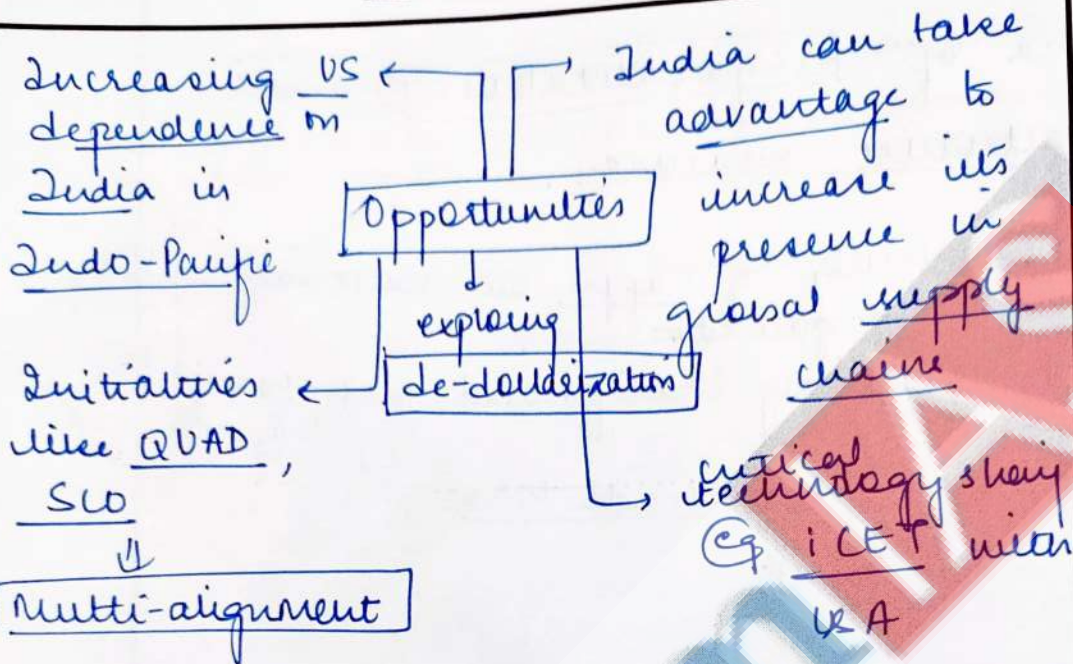 Increasing US
dependence on
India in
Indo-Pacific
India can take
advantage to
increase its
presence in
global supply
chains
Opportunities
exploring
de-dollarization
Initiatives
like QUAD,
SCO
⇓
Multi-alignment
critical
technology sharing
eg iCET with
USA